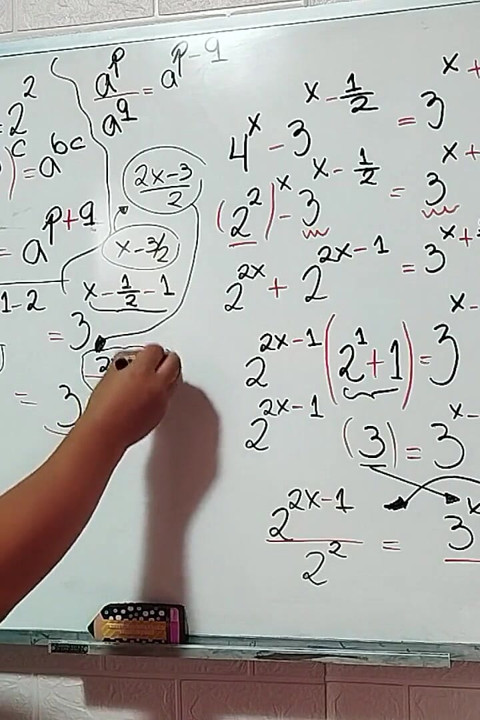 = 2²
a^p / a^q = a^(p-q)
)^c = a^(bc)
= a^(p+q)
(2x-3)/2
x - 3/2
x - 1/2 - 1
1-2
= 3
= 3
4^x - 3^(x - 1/2) = 3^(x+
(2²)^x - 3^(x - 1/2) = 3^(x+
2^(2x) + 2^(2x-1) = 3^(x+
2^(2x-1) (2¹+1) = 3^(x-
2^(2x-1) (3) = 3^(x-
2^(2x-1) / 2² = 3^x